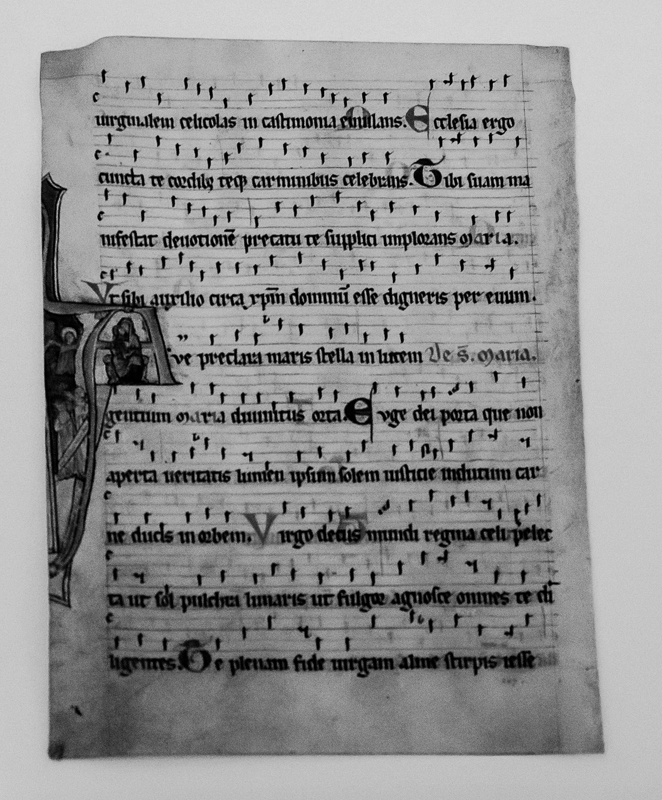 uirginalem celicolas in castimonia emulans. Ecclesia ergo
cuncta te cordibꝫ teqꝫ carminibus celebrans. Tibi suam ma
nifestat deuotionē precatu te supplici implorans maria.
Vt sibi auxilio circa xp̄m dominū esse digneris per euum.
Aue preclara maris stella in lucem De s̄. maria.
gentium maria diuinitus orta. Euge dei porta que non
aperta ueritatis lumen ipsum solem iusticie indutum car
ne ducis in orbem. Virgo decus mundi regina celi pelec
ta ut sol pulchra lunaris ut fulgor agnosce omnes te di
ligentes. Te plenam fide uirgam alme stirpis iesse